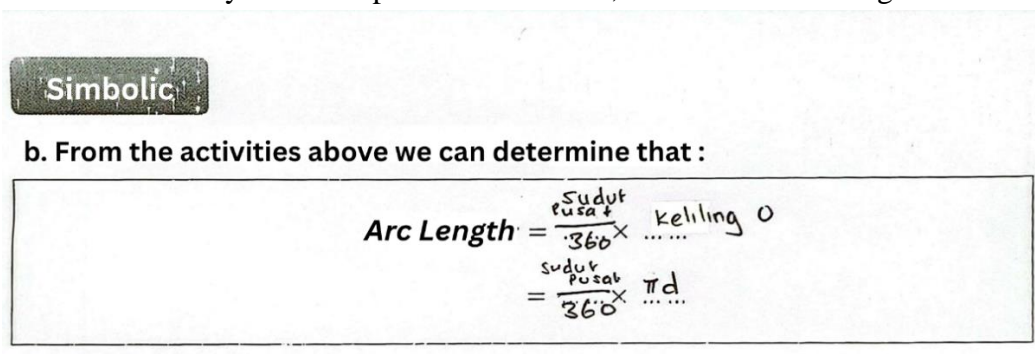 Simbolic
b. From the activities above we can determine that :
Arc Length = Sudut Pusat / 360 × Keliling O
= Sudut Pusat / 360 × πd